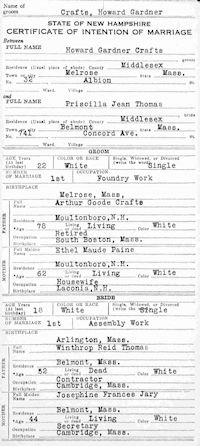 Name of groom Crafts, Howard Gardner
STATE OF NEW HAMPSHIRE
CERTIFICATE OF INTENTION OF MARRIAGE
Between
FULL NAME
Howard Gardner Crafts
Residence (Usual place of abode) County Middlesex
Town or city Melrose State Mass.
No. 32 Albion
Ward. Village
and
FULL NAME
Priscilla Jean Thomas
Residence (Usual place of abode) County Middlesex
Town or city Belmont State Mass.
No. 741 Concord Ave.
Ward. Village
GROOM
AGE Years (At last birthday) 22 COLOR OR RACE White Single, Widowed, or Divorced (write the word) Single
NUMBER OF MARRIAGE 1st OCCUPATION Foundry Work
BIRTHPLACE
Melrose, Mass,
FATHER
Full Name Arthur Goode Crafts
Residence Moultonboro, N.H.
Age 78 Living or Dead Living Color White
Occupation Retired
Birthplace South Boston, Mass.
MOTHER
Full Maiden Name Ethel Maude Paine
Residence Moultonboro, N.H.
Age 62 Living or Dead Living Color White
Occupation Housewife
Birthplace Laconia, N.H.
BRIDE
AGE Years (At last birthday) 18 COLOR OR RACE White Single, Widowed, or Divorced (write the word) Single
NUMBER OF MARRIAGE 1st OCCUPATION Assembly Work
BIRTHPLACE
Arlington, Mass.
FATHER
Full Name Winthrop Reid Thomas
Residence Belmont, Mass.
Age 52 Living or Dead Dead Color White
Occupation Contractor
Birthplace Cambridge, Mass.
MOTHER
Full Maiden Name Josephine Frances Jary
Residence Belmont, Mass.
Age 44 Living or Dead Living Color White
Occupation Secretary
Birthplace Cambridge, Mass.